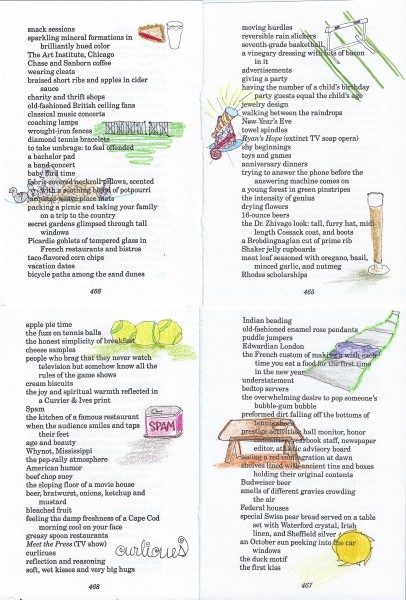 snack sessions
sparkling mineral formations in
brilliantly hued color
The Art Institute, Chicago
Chase and Sanborn coffee
wearing cleats
braised short ribs and apples in cider
sauce
charity and thrift shops
old-fashioned British ceiling fans
classical music concerts
coaching lamps
wrought-iron fences
diamond tennis bracelets
to take umbrage: to feel offended
a bachelor pad
a band concert
baby bird time
fabric-covered neckroll pillows, scented
with a soothing blend of potpourri
place mats
packing a picnic and taking your family
on a trip to the country
secret gardens glimpsed through tall
windows
Picardie goblets of tempered glass in
French restaurants and bistros
taco-flavored corn chips
vacation dates
bicycle paths among the sand dunes
466
moving hurdles
reversible rain slickers
seventh-grade basketball
a vinegary dressing with bits of bacon
in it
advertisements
giving a party
having the number of a child's birthday
party guests equal the child's age
jewelry design
walking between the raindrops
New Year's Eve
towel spindles
Ryan's Hope (extinct TV soap opera)
shy beginnings
toys and games
anniversary dinners
trying to answer the phone before the
answering machine comes on
a young forest in green pinstripes
the intensity of genius
drying flowers
16-ounce beers
the Dr. Zhivago look: tall, furry hat, midi-
length Cossack coat, and boots
a Brobdingnagian cut of prime rib
Shaker jelly cupboards
meat loaf seasoned with oregano, basil,
minced garlic, and nutmeg
Rhodes scholarships
465
apple pie time
the fuzz on tennis balls
the honest simplicity of breakfast
cheese samples
people who brag that they never watch
television but somehow know all the
rules of the game shows
cream biscuits
the joy and spiritual warmth reflected in
a Currier & Ives print
Spam
the kitchen of a famous restaurant
when the audience smiles and taps
their feet
age and beauty
Whynot, Mississippi
the pep-rally atmosphere
American humor
beef chop suey
the sloping floor of a movie house
beer, bratwurst, onions, ketchup and
mustard
bleached fruit
feeling the damp freshness of a Cape Cod
morning cool on your face
greasy spoon restaurants
Meet the Press (TV show)
curlicues
reflection and reasoning
soft, wet kisses and very big hugs
SPAM
curlicues
468
Indian beading
old-fashioned enamel rose pendants
puddle jumpers
Edwardian London
the French custom of making a wish each
time you eat a food for the first time
in the new year
understatement
bedtop servers
the overwhelming desire to pop someone's
bubble-gum bubble
preformed dirt falling off the bottoms of
tennis shoes
prestige activities: hall monitor, honor
committee, yearbook staff, newspaper
editor, athletic advisory board
seeing a red conflagration at dawn
shelves lined with ancient tins and boxes
holding their original contents
Budweiser beer
smells of different gravies crowding
the air
Federal houses
special Swiss pear bread served on a table
set with Waterford crystal, Irish
linen, and Sheffield silver
an October sun peeking into the car
windows
the duck motif
the first kiss
467